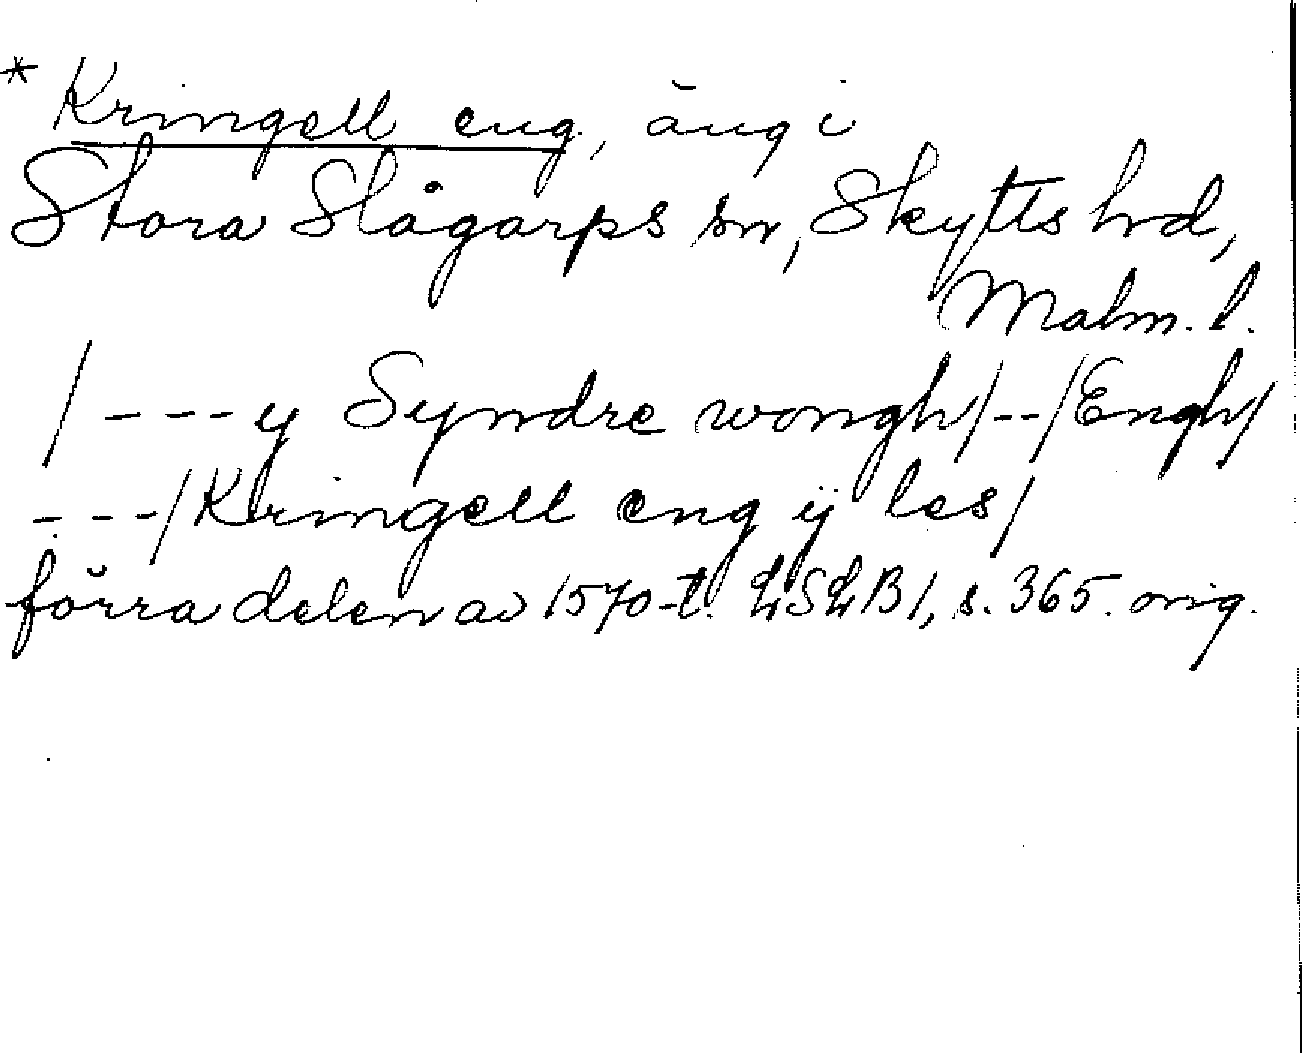 * Kringell eng, äng i
Stora Slågarps sn, Skytts hrd,
Malm. l.
/---y Syndre wongh/--/Engh/
---/Kringell eng ij les/
förra delen av 1570-t. LSLB1, s. 365. orig.